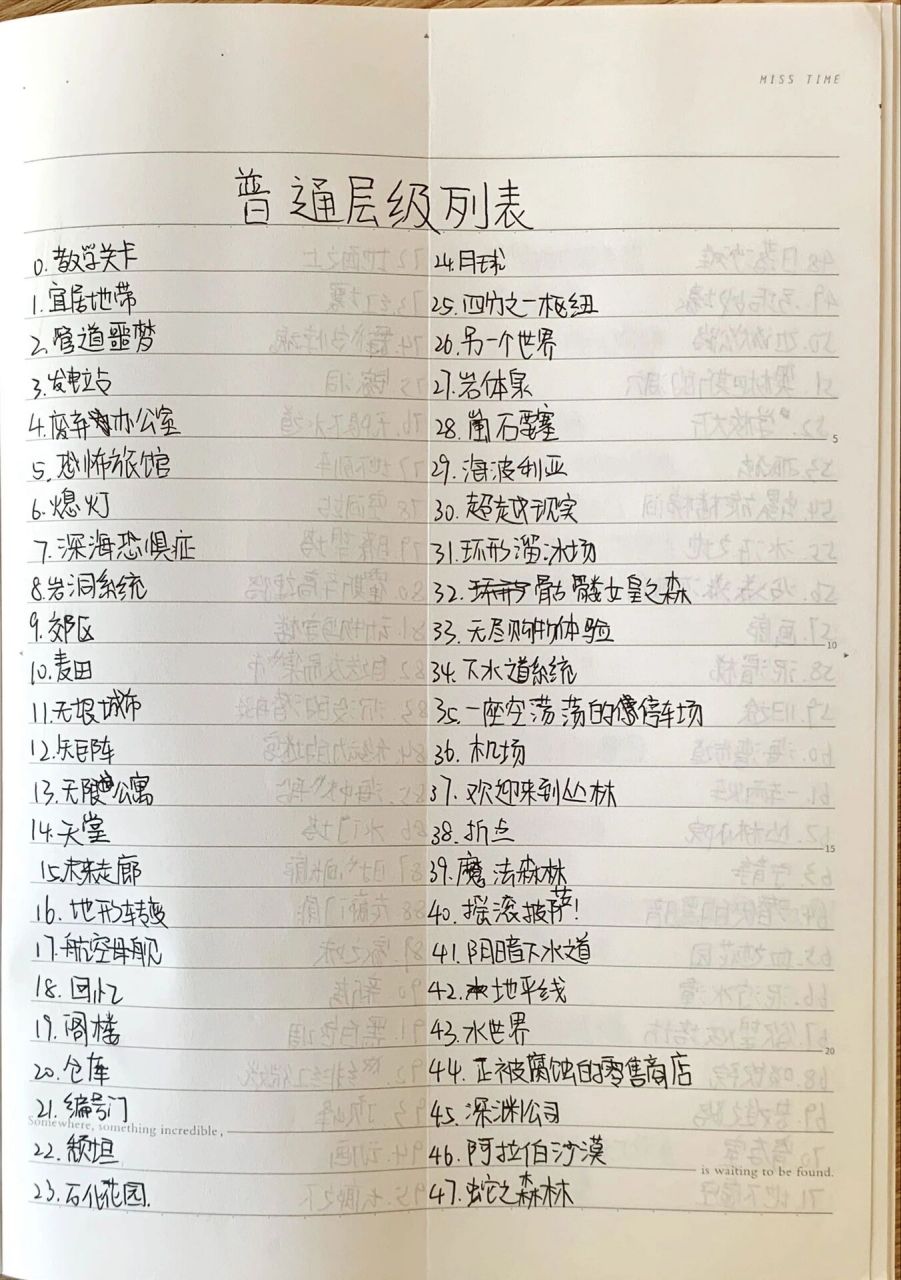 MISS TIME
普通层级列表
0.教学关卡
1.宜居地带
2.管道噩梦
3.发电站
4.废弃办公室
5.恐怖旅馆
6.熄灯
7.深海恐惧症
8.岩洞系统
9.郊区
10.麦田
11.无垠城市
12.矩阵
13.无限公寓
14.天堂
15.未来走廊
16.地形转变
17.航空母舰
18.回忆
19.阁楼
20.仓库
21.编号门
Somewhere, something incredible,
22.颓坦
23.石化花园.
24.月球
25.四分之一枢纽
26.另一个世界
27.岩体泉
28.萤石要塞
29.海波利亚
30.超越现实
31.环形溜冰场
32.骷髅女皇之森
33.无尽购物体验
34.下水道系统
35.一座空荡荡的停车场
36.机场
37.欢迎来到丛林
38.折点
39.魔法森林
40.摇滚披萨!
41.阴暗下水道
42.地平线
43.水世界
44.正被腐蚀的零售商店
45.深渊公司
46.阿拉伯沙漠
is waiting to be found.
47.蛇之森林
5
10
15
20